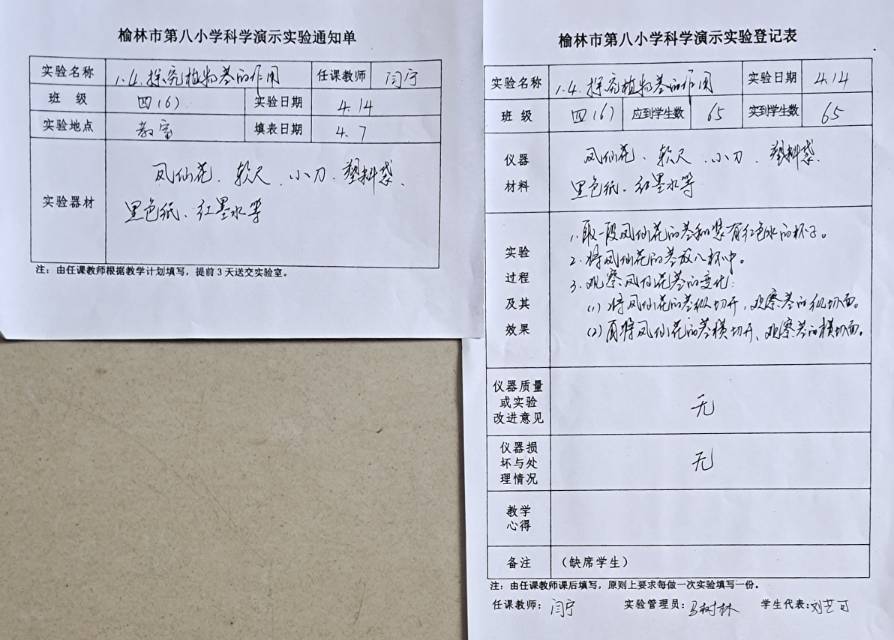 榆林市第八小学科学演示实验通知单
实验名称 1.4.探究植物茎的作用 任课教师 闫宁
班 级 四(6) 实验日期 4.14
实验地点 教室 填表日期 4.7
实验器材 凤仙花、软尺、小刀、塑料袋、
黑色纸、红墨水等
注：由任课教师根据教学计划填写，提前3天送交实验室。
榆林市第八小学科学演示实验登记表
实验名称 1.4.探究植物茎的作用 实验日期 4.14
班 级 四(6) 应到学生数 65 实到学生数 65
仪器材料 凤仙花、软尺、小刀、塑料袋、
黑色纸、红墨水等
实验过程及其效果
1.取一段凤仙花的茎和装有红色水的杯子。
2.将凤仙花的茎放入杯中。
3.观察凤仙花茎的变化:
(1)将凤仙花的茎纵切开,观察茎的纵切面。
(2)再将凤仙花的茎横切开、观察茎的横切面。
仪器质量或实验改进意见 无
仪器损坏与处理情况 无
教学心得
备注 (缺席学生)
注：由任课教师课后填写，原则上要求每做一次实验填写一份。
任课教师: 闫宁 实验管理员: 马树林 学生代表: 刘艺可